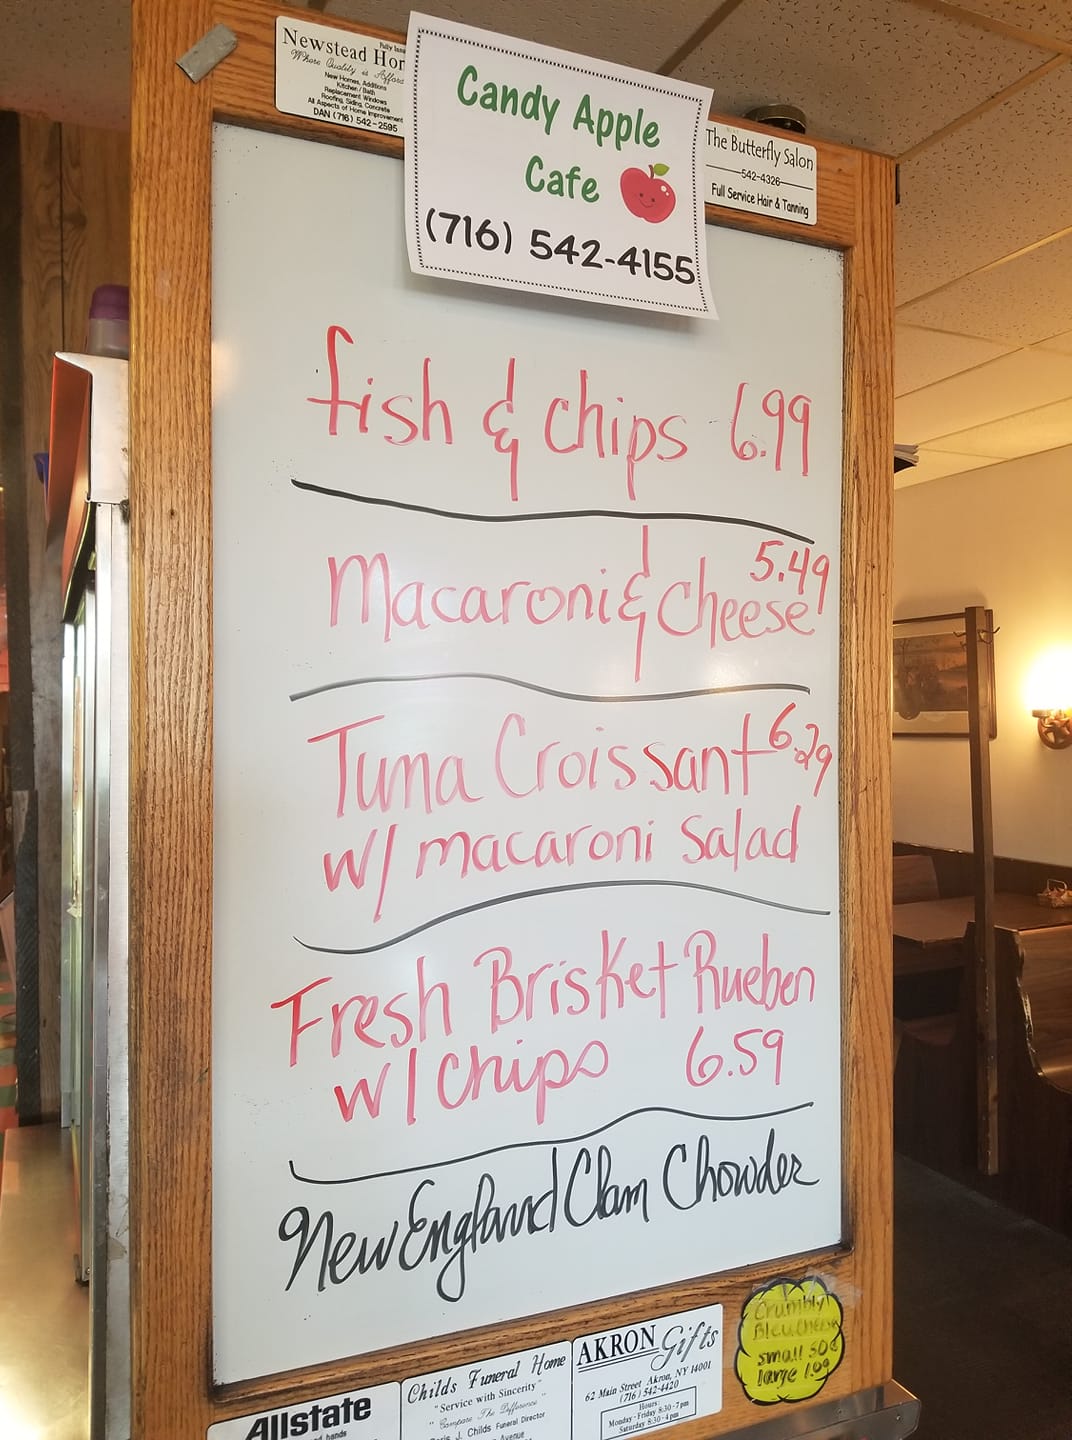 Newstead Hor
Fully Insu
Where Quality is Afford
New Homes, Additions
Kitchen / Bath
Replacement Windows
Roofing, Siding, Concrete
All Aspects of Home Improvement
DAN (716) 542-2595
Candy Apple
Cafe
(716) 542-4155
The Butterfly Salon
542-4326
Full Service Hair & Tanning
fish & chips 6.99
Macaroni & Cheese 5.49
Tuna Croissant 6.29
w/ macaroni salad
Fresh Brisket Rueben
w/ chips 6.59
New England Clam Chowder
Crumbly
Bleu Cheese
small 50¢
large 1.00
Allstate
hands
Childs Funeral Home
"Service with Sincerity"
"Compare The Difference"
J. Childs Funeral Director
Avenue
AKRON Gifts
62 Main Street Akron, NY 14001
(716) 542-4420
Hours:
Monday - Friday 8:30 - 7 pm
Saturday 8:30 - 4 pm